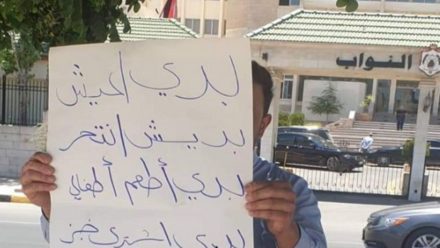 النواب
بدي اعيش
بديش انتحر
بدي أطعم أطفالي
بدي اشتري خبز